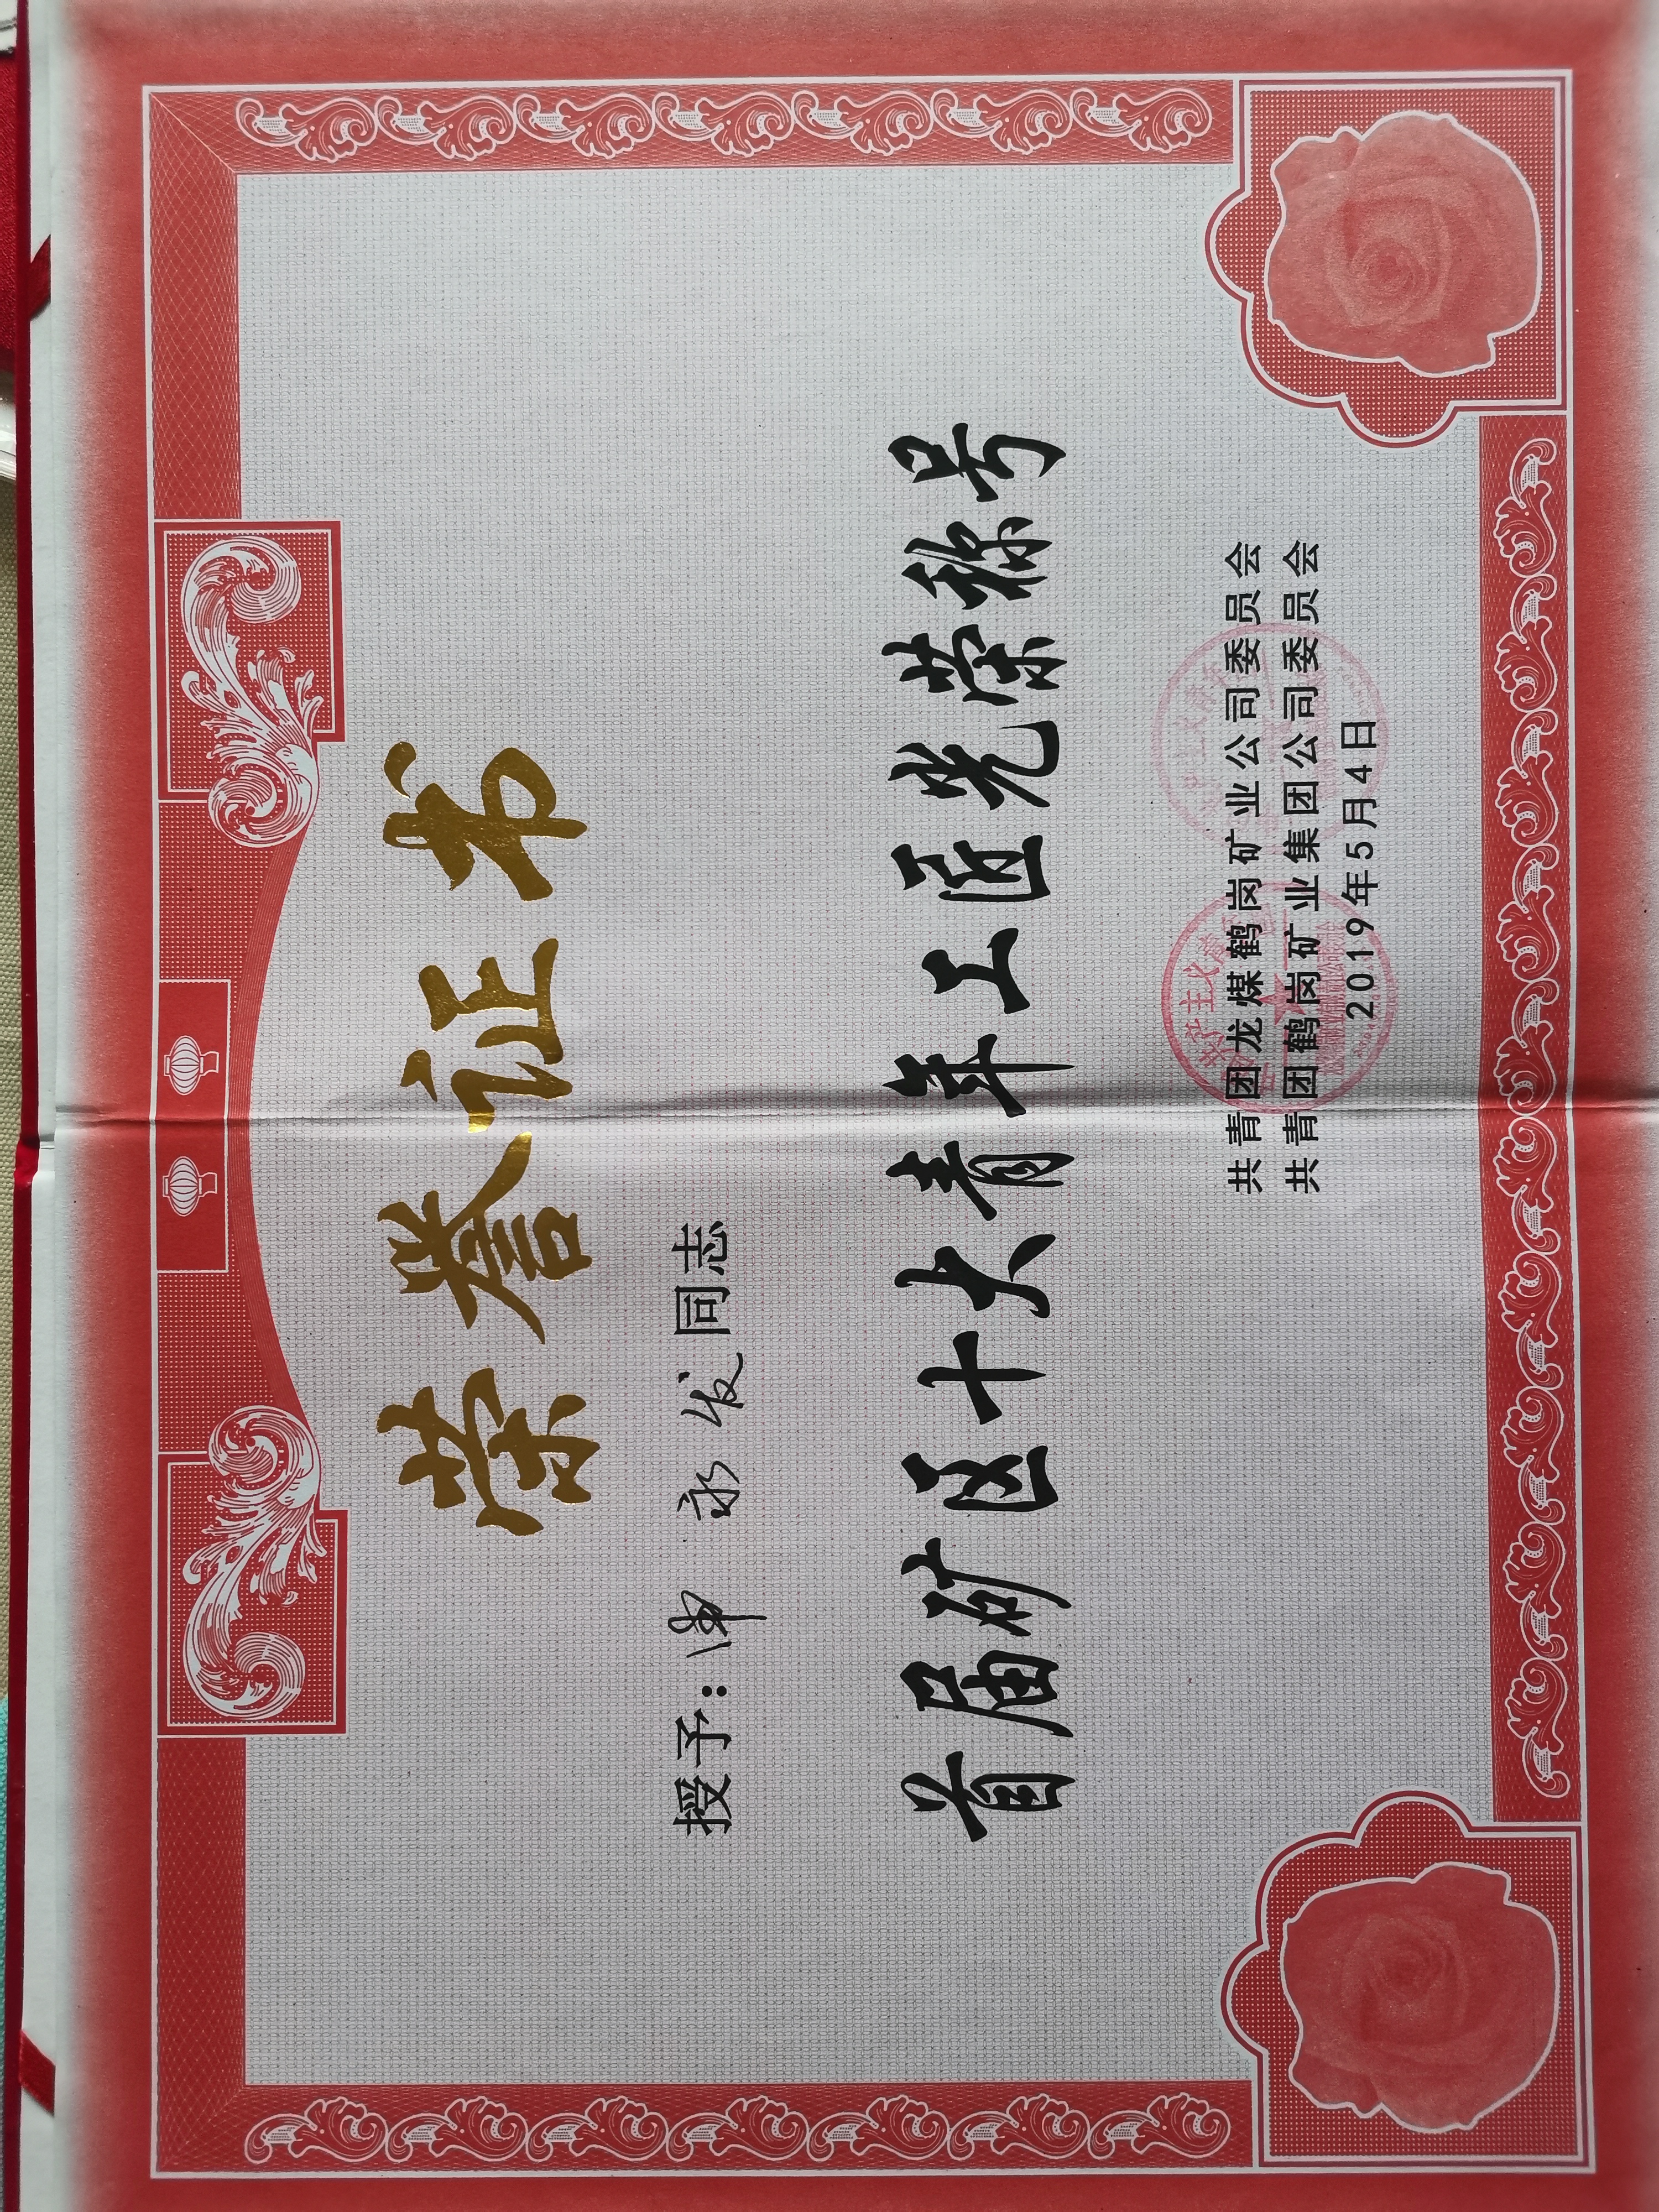 荣誉证书
授予： 永发同志
首届矿区十大青年工匠光荣称号
共青团龙煤鹤岗矿业公司委员会
共青团鹤岗矿业集团公司委员会
2019年5月4日
共产主义青年